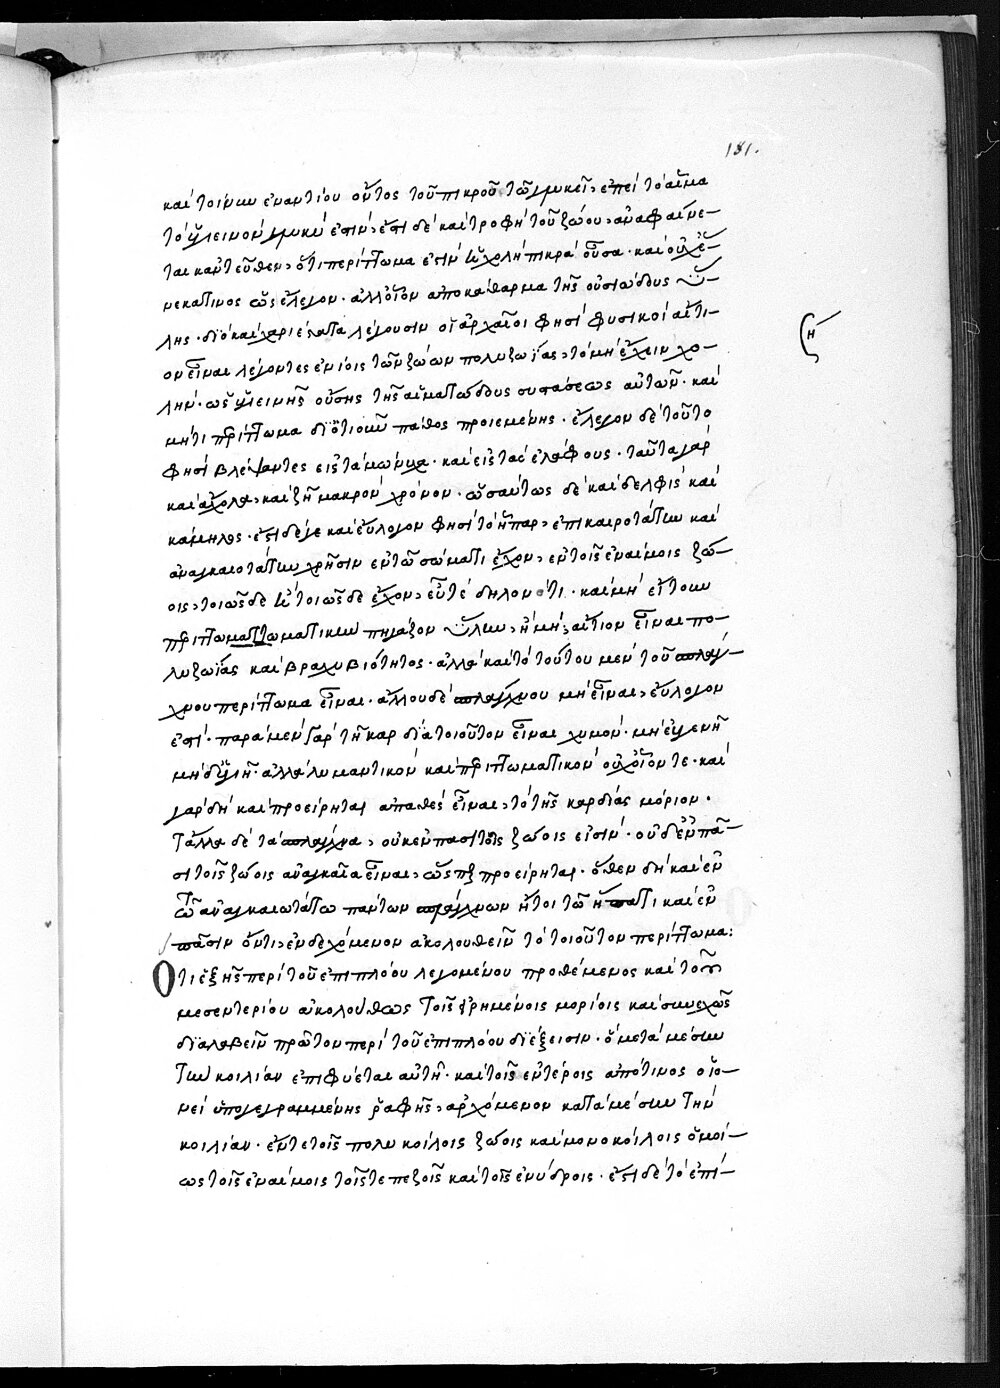 181.
καὶ τοίνυν ἐναντίου ὄντος τοῦ πικροῦ τῶ γλυκεῖ, ἐπεὶ τὸ αἷμα
τὸ ὑγιεινὸν γλυκύ ἐστιν, ἔστι δὲ καὶ τροφὴ τοῦ ζώου, ἀναφαίνε-
ται κἀντεῦθεν, ὅτι περίττωμα ἐστὶν ἡ χολὴ πικρὰ οὖσα. καὶ οὐχ ἕ-
νεκα τινος ὡς ἔλεγον. ἀλλ' οἷον ἀποκάθαρμα τῆς οὐσιώδους ὕ-
λης. διὸ καὶ χαριέστατα λέγουσιν οἱ ἀρχαῖοι φησὶ φυσικοὶ αἴτι-
ον εἶναι λέγοντες ἐνίοις τῶν ζώων πολυζωΐας, τὸ μὴ ἔχειν χο-
(ἡ
λήν. ὡς ὑγιεινῆς οὔσης τῆς αἱματώδους συστάσεως αὐτῶν. καὶ
μήτι περίττωμα δι' ὁτιοῦν πάθος προιεμένης. ἔλεγον δὲ τοῦτο
φησὶ βλέψαντες εἰς τὰ μώνυχα. καὶ εἰς τὰς ἐλάφους. ταῦτα γὰρ
καὶ ἄχολα, καὶ ζῆ μακρὸν χρόνον. ὡσαύτως δὲ καὶ δελφὶς καὶ
κάμηλος. ἔστι δέ γε καὶ εὔλογον φησὶ τὸ ἧπαρ, ἐπικαιροτάτην καὶ
ἀναγκαιοτάτην χρῆσιν ἐν τῶ σώματι ἔχον, ἐν τοῖς ἐναίμοις ζώ-
οις, τοιῶσδε ἢ τοιῶσδε ἔχον, εὖ τέ δηλονότι. καὶ μὴ εἴτουν
περιττωματικὴν πηγάζον ὕλην, ἢ μὴ, αἴτιον εἶναι πο-
λυζωΐας καὶ βραχυβιότητος. ἀλλὰ καὶ τὸ τούτου μὲν τοῦ σπλάγ-
χνου περίττωμα εἶναι. ἄλλου δὲ σπλάγχνου μὴ εἶναι, εὔλογον
ἐστί. παρὰ μὲν γὰρ τῆ καρδία τοιοῦτον εἶναι χυμὸν. μὴ εὐγενῆ
μηδ' ὑγιῆ. ἀλλὰ λυμαντικὸν καὶ περιττωματικὸν οὐχ οἷόν τε. καὶ
γὰρ δὴ καὶ προείρηται ἀπαθὲς εἶναι, τὸ τῆς καρδίας μόριον.
Τἄλλα δὲ τὰ σπλάγχνα, οὐκ ἐν πᾶσι τοῖς ζώοις εἰσίν. οὐδ' ἐν πᾶ-
σι τοῖς ζώοις ἀναγκαῖα εἶναι, ὥσπερ προείρηται. ὅθεν δὴ καὶ ἐν
τῶ ἀναγκαιωτάτω πάντων σπλάγχνων ἤτοι τῶ ἥπατι καὶ ἐν
πᾶσιν ὄντι, ἐνδεχόμενον ἀκολουθεῖν τὸ τοιοῦτον περίττωμα:
Ὅτι ἑξῆς περὶ τοῦ ἐπιπλόου λεγομένου προθέμενος καὶ τοῦ
μεσεντερίου ἀκολούθως τοῖς εἰρημένοις μορίοις καὶ συνεχῶς
διαλαβεῖν πρῶτον περὶ τοῦ ἐπιπλόου διέξεισιν. ὃ μετὰ μέσην
τὴν κοιλίαν ἐπιφύεται αὐτῆ. καὶ τοῖς ἐντέροις ἀπό τινος οἱο-
νεὶ ὑπογεγραμμένης ῥαφῆς, ἀρχόμενον κατὰ μέσην τὴν
κοιλίαν. ἔν τε τοῖς πολυκοίλοις ζώοις καὶ μονοκοίλοις ὁμοί-
ως τοῖς ἐναίμοις τοῖς τε πεζοῖς καὶ τοῖς ἐνύδροις. ἔστι δὲ τὸ ἐπί-